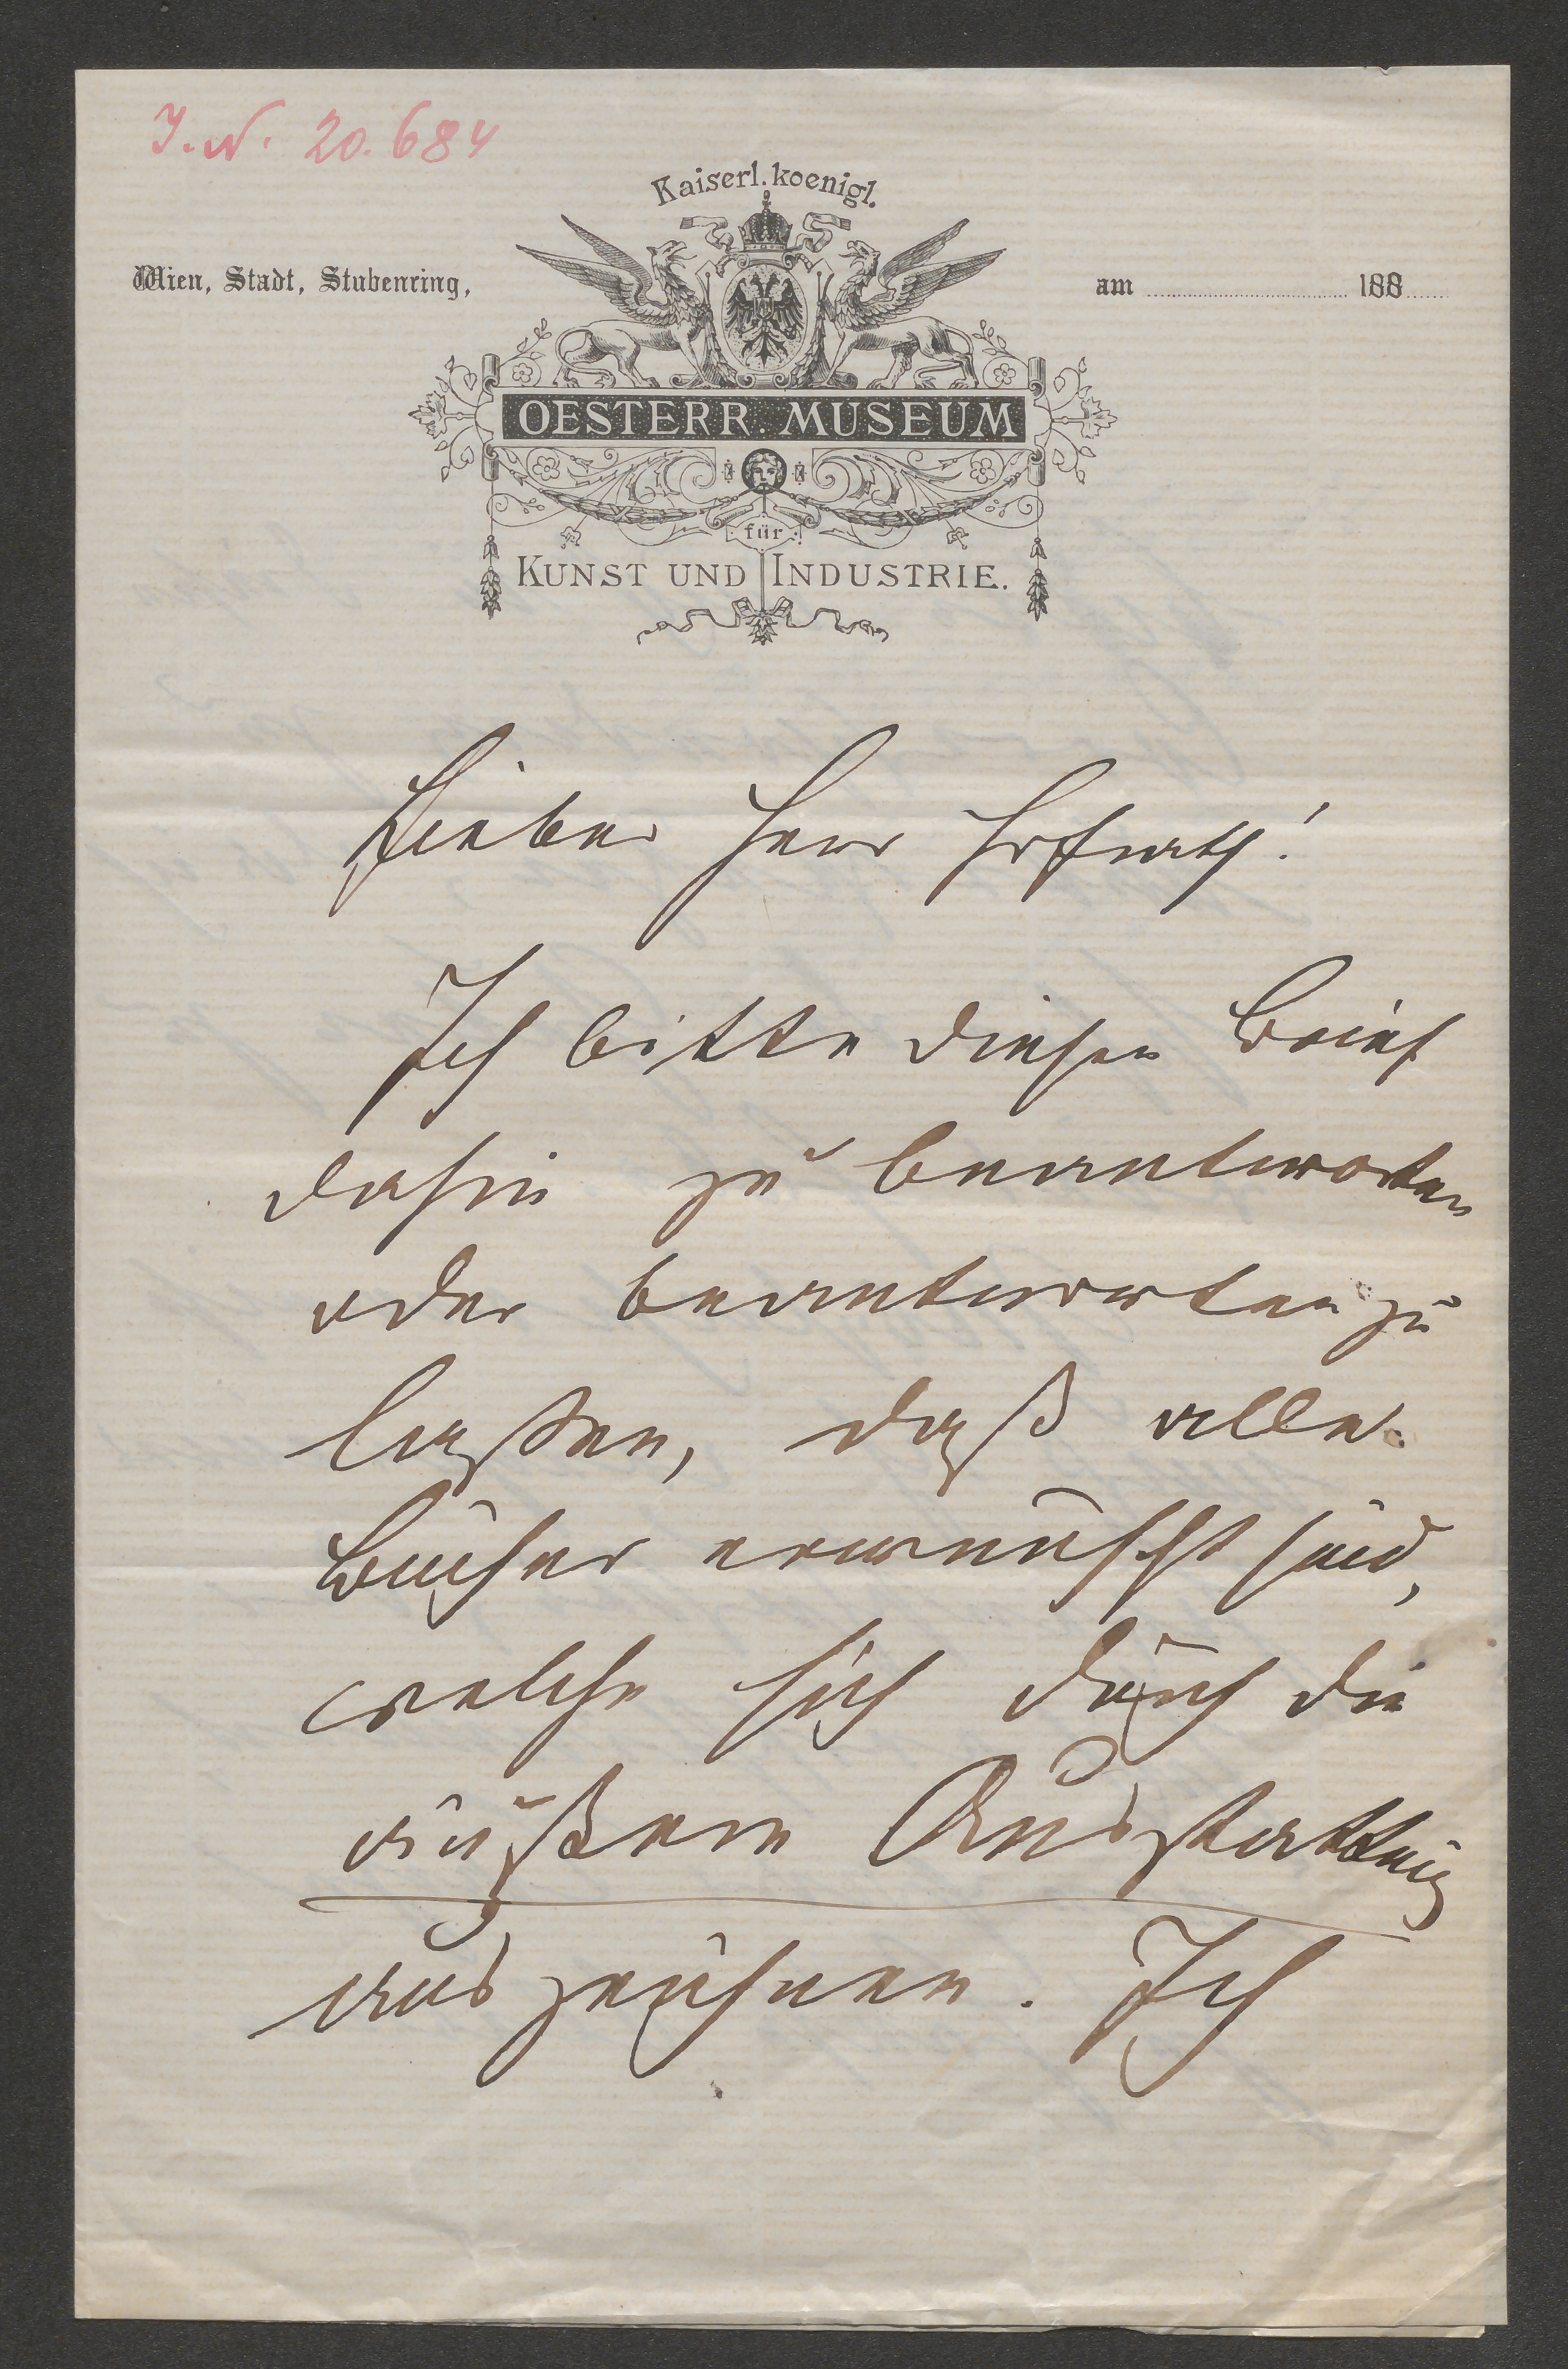 J.N. 20.684
Kaiserl. koenigl.
Wien, Stadt, Stubenring,
am 188
OESTERR. MUSEUM
für
KUNST UND INDUSTRIE.
Lieber Herr Hofrath!
Ich bitte diesen Brief
dahin zu beantworten
oder beantworten zu
lassen, daß alle
Bücher erwünscht sind,
welche sich durch die
äußere Ausstattung
auszeichnen. Ich